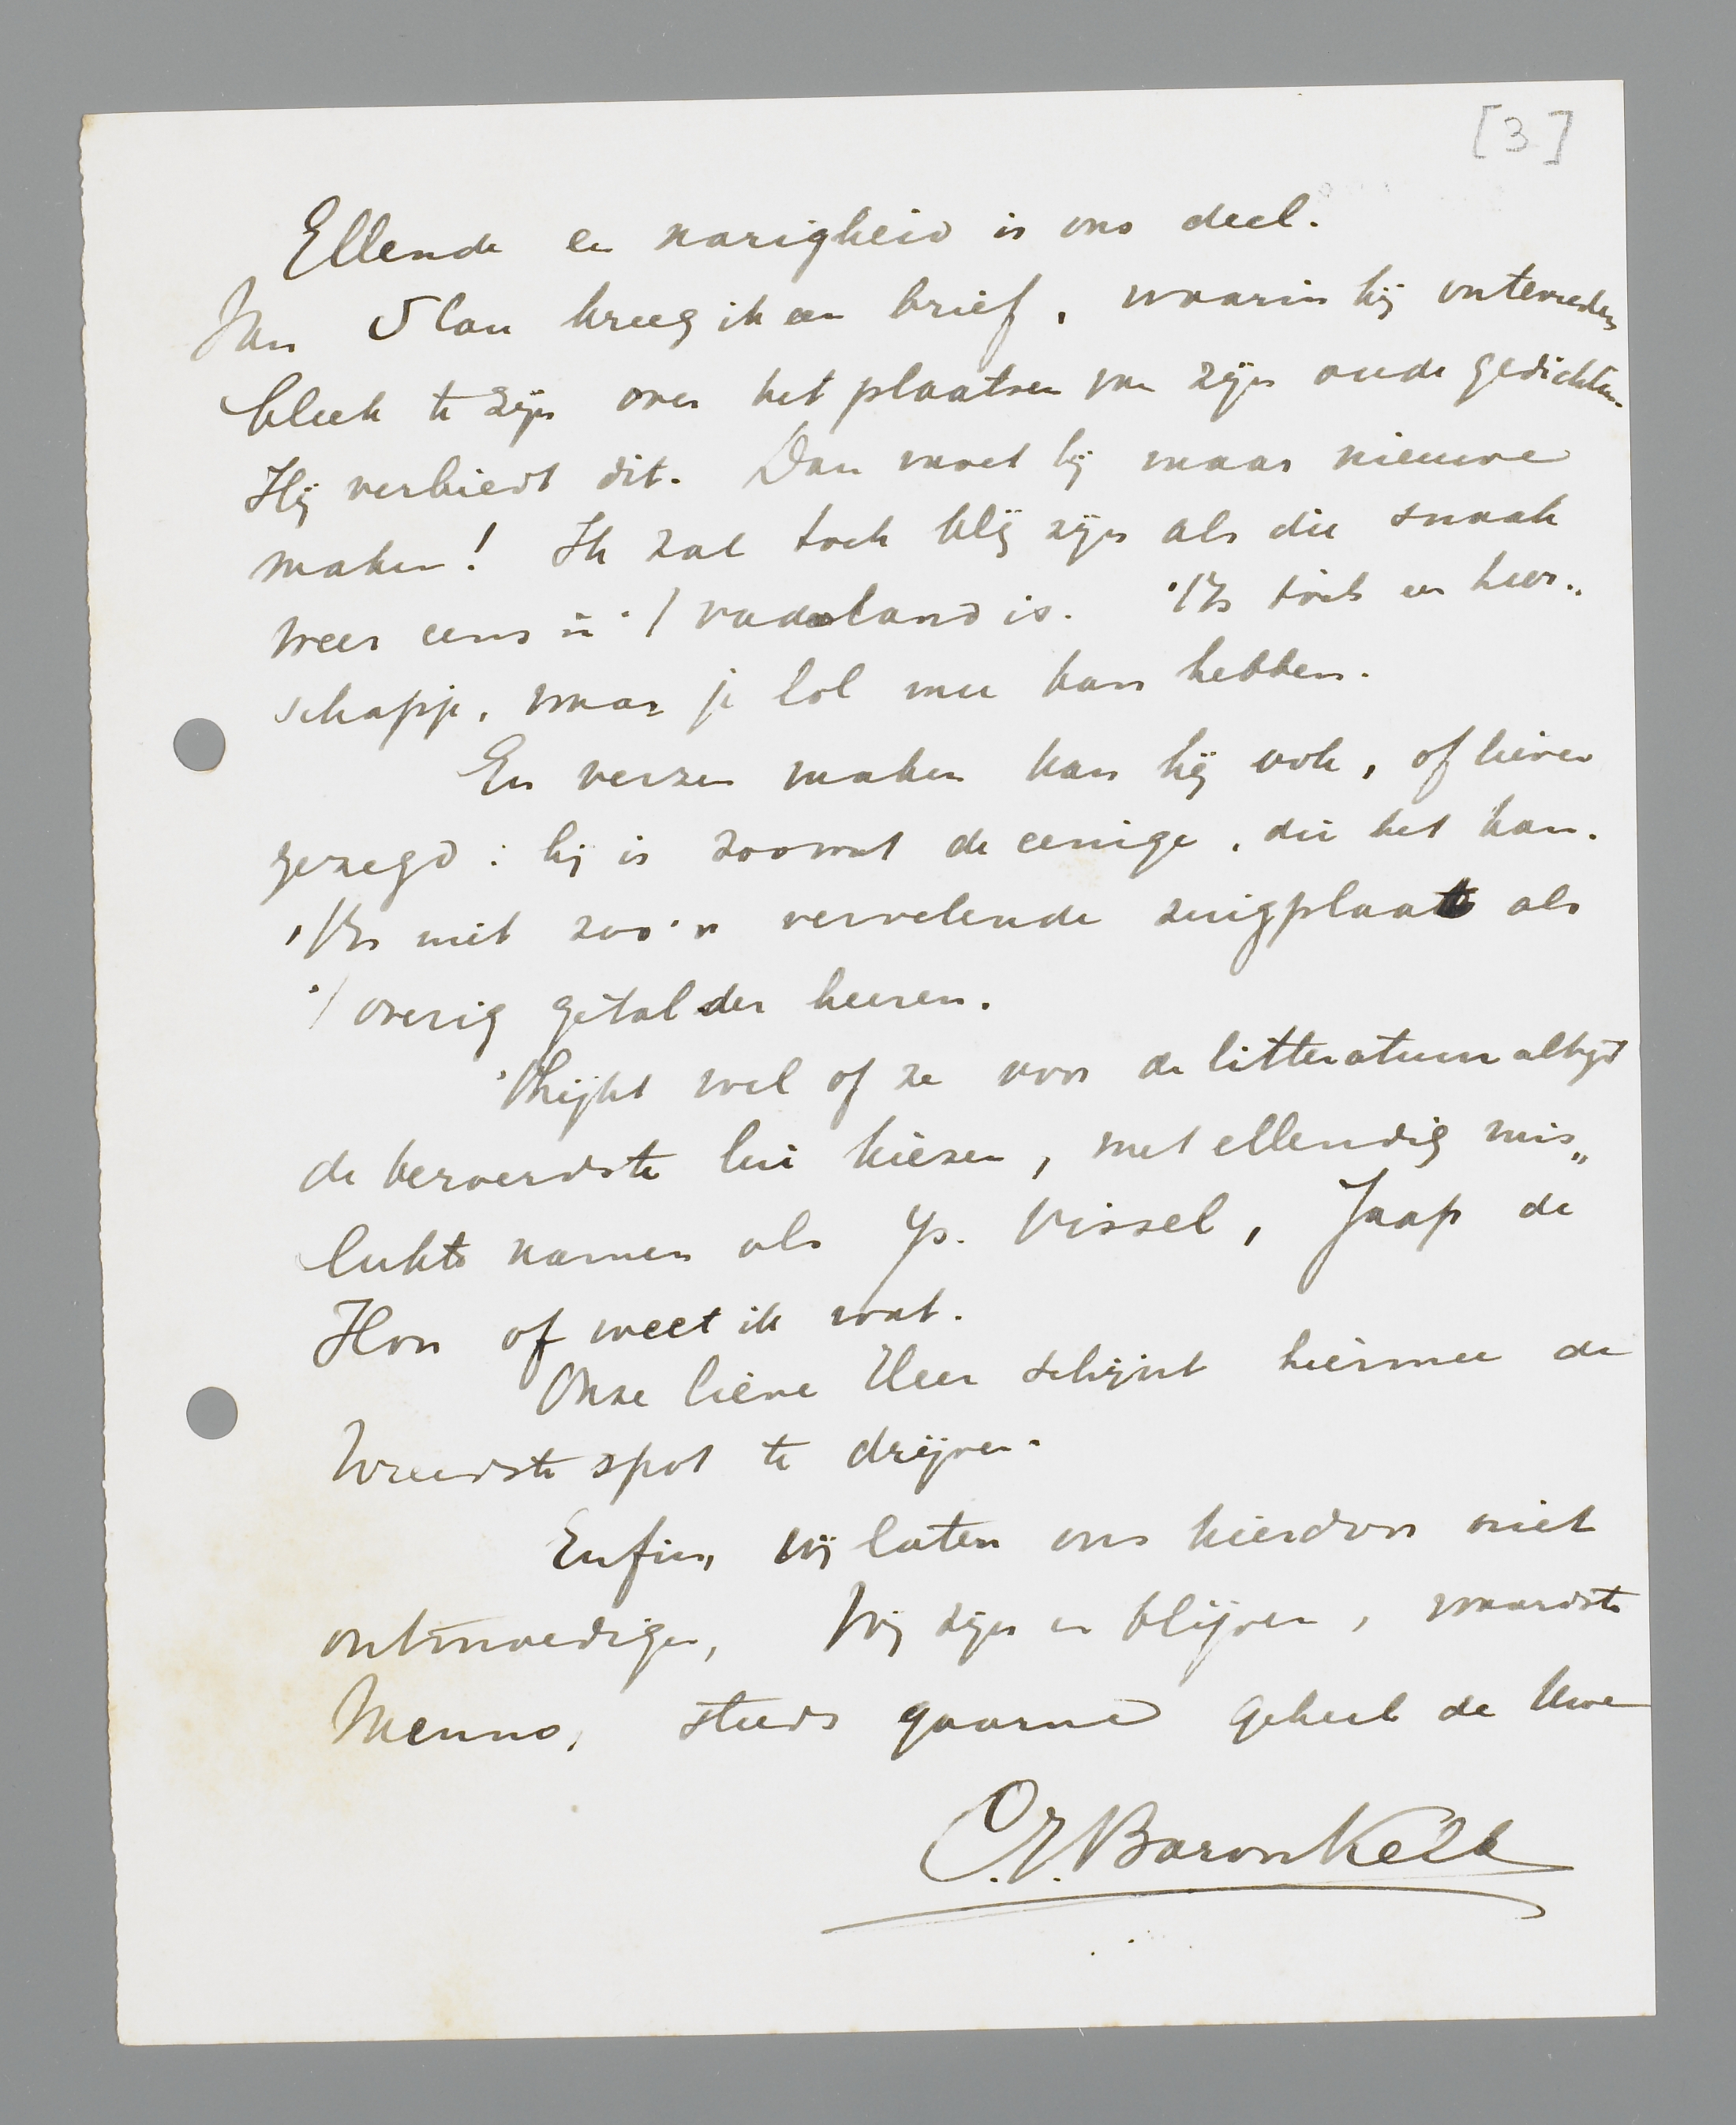 [3]
Ellende en narigheid is ons deel.
Van Slau kreeg ik een brief, waarin hij ontevreden
bleek te zijn over het plaatsen van zijn oude gedichten.
Hij verbiedt dit. Dan moet hij maar nieuwe
maken! Ik zal toch blij zijn als die snaak
weer eens in 't vaderland is. 't Is toch een heer„
schapje, waar je lol mee kan hebben.
En verzen maken kan hij ook, of liever
gezegd: hij is zoowat de eenige, die het kan.
't Is niet zoo'n vervelende zuigplaat als
't overig getal der heeren.
't Lijkt wel of ze voor de litteratuur altijd
de beroerdste lui kiezen, met ellendig mis„
lukte namen als Ys. Vissel, Jaap de
Hon of weet ik wat.
Onze lieve Heer schijnt hiermee de
wreedste spot te drijven.
Enfin, wij laten ons hierdoor niet
ontmoedigen, wij zijn en blijven, waardste
Menno, steeds gaarne geheel de Uwe